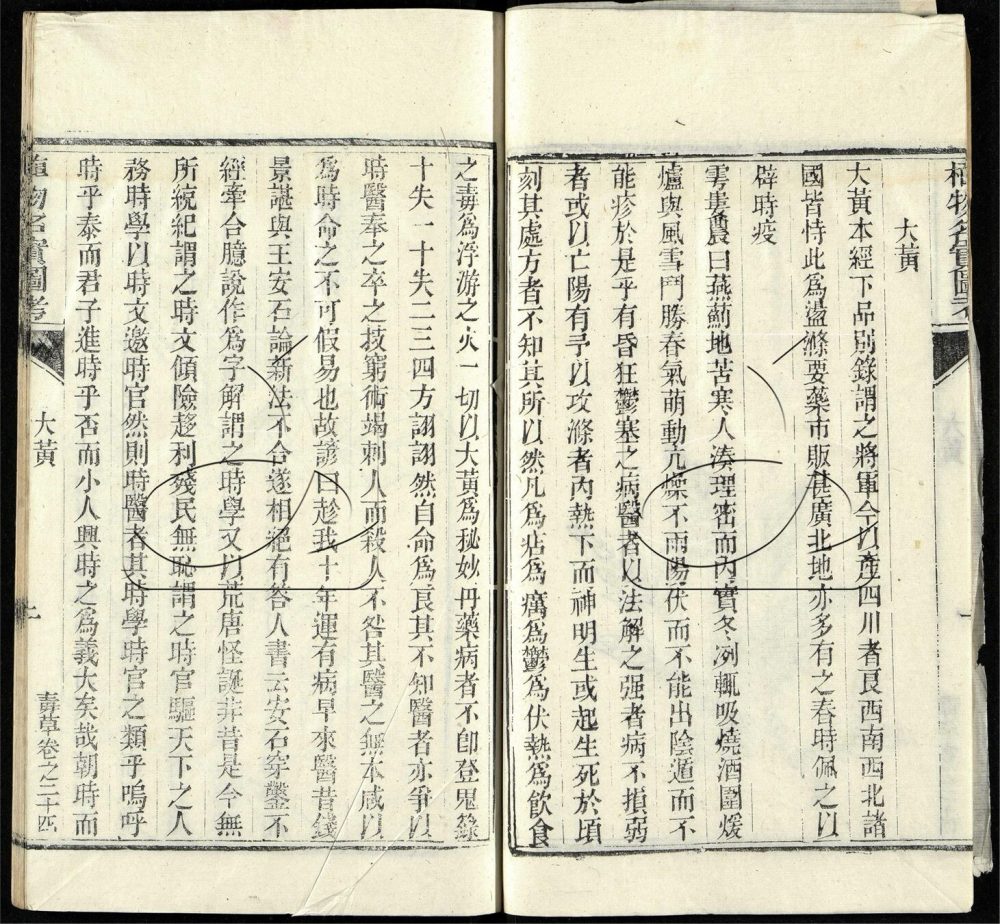 植物名實圖考
大黃
大黃本經下品別錄謂之將軍今以產四川者良西南西北諸
國皆恃此爲盪滌要藥市販甚廣北地亦多有之春時佩之以
辟時疫
雩婁農曰燕薊地苦寒人湊理密而內實冬冽輒吸燒酒圍煖
爐與風雪鬥勝春氣萌動亢燥不雨陽伏而不能出陰遁而不
能疹於是乎有昏狂鬱塞之病醫者以法解之强者病不損弱
者或以亡陽有予以攻滌者內熱下而神明生或起生死於頃
刻其處方者不知其所以然凡爲痁爲癘爲鬱爲伏熱爲飲食
之毒爲浮游之火一切以大黃爲秘妙丹藥病者不卽登鬼錄
十失一十失二三四方詡詡然自命爲良其不知醫者亦爭以
時醫奉之卒之技窮術竭刺人而殺人不咎其醫之無本咸以
爲時命之不可假易也故諺曰趁我十年運有病早來醫昔錢
景諶與王安石論新法不合遂相絕有答人書云安石穿鑿不
經牽合臆說作爲字解謂之時學又以荒唐怪誕非昔是今無
所統紀謂之時文傾險趍利殘民無恥謂之時官驅天下之人
務時學以時文邀時官然則時醫者其時學時官之類乎嗚呼
時乎泰而君子進時乎否而小人興時之爲義大矣哉朝時而
植物名實圖考
大黃
毒草卷之二十四